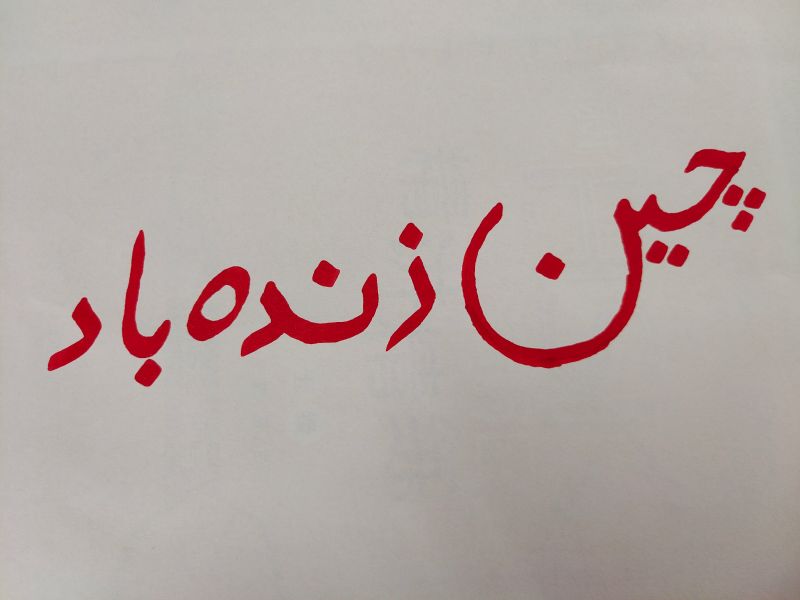 چین زنده باد